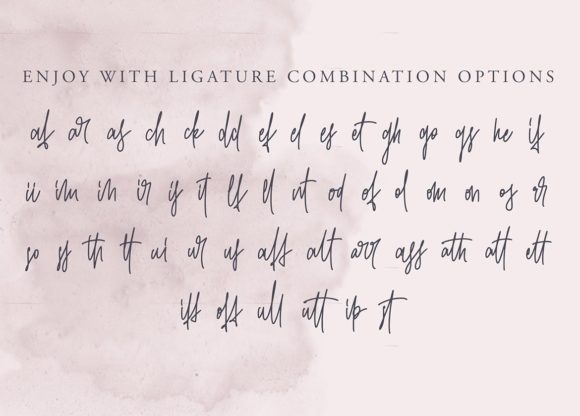 ENJOY WITH LIGATURE COMBINATION OPTIONS
af ar as ch ck dd ef el es et gh go gs he if
ii im in ir is it lf ll nt od of ol om on os rr
so ss th tt ui ur us aff alt arr ass ath att ett
iff off ull utt ip st